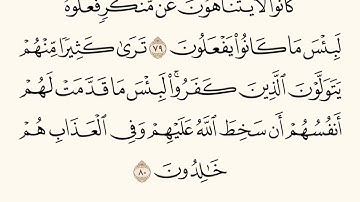 كَانُوا۟ لَا يَتَنَاهَوْنَ عَن مُّنكَرٍ فَعَلُوهُ
لَبِئْسَ مَا كَانُوا۟ يَفْعَلُونَ ٧٩ تَرَىٰ كَثِيرًا مِّنْهُمْ
يَتَوَلَّوْنَ ٱلَّذِينَ كَفَرُوا۟ ۚ لَبِئْسَ مَا قَدَّمَتْ لَهُمْ
أَنفُسُهُمْ أَن سَخِطَ ٱللَّهُ عَلَيْهِمْ وَفِى ٱلْعَذَابِ هُمْ
خَٰلِدُونَ ٨٠